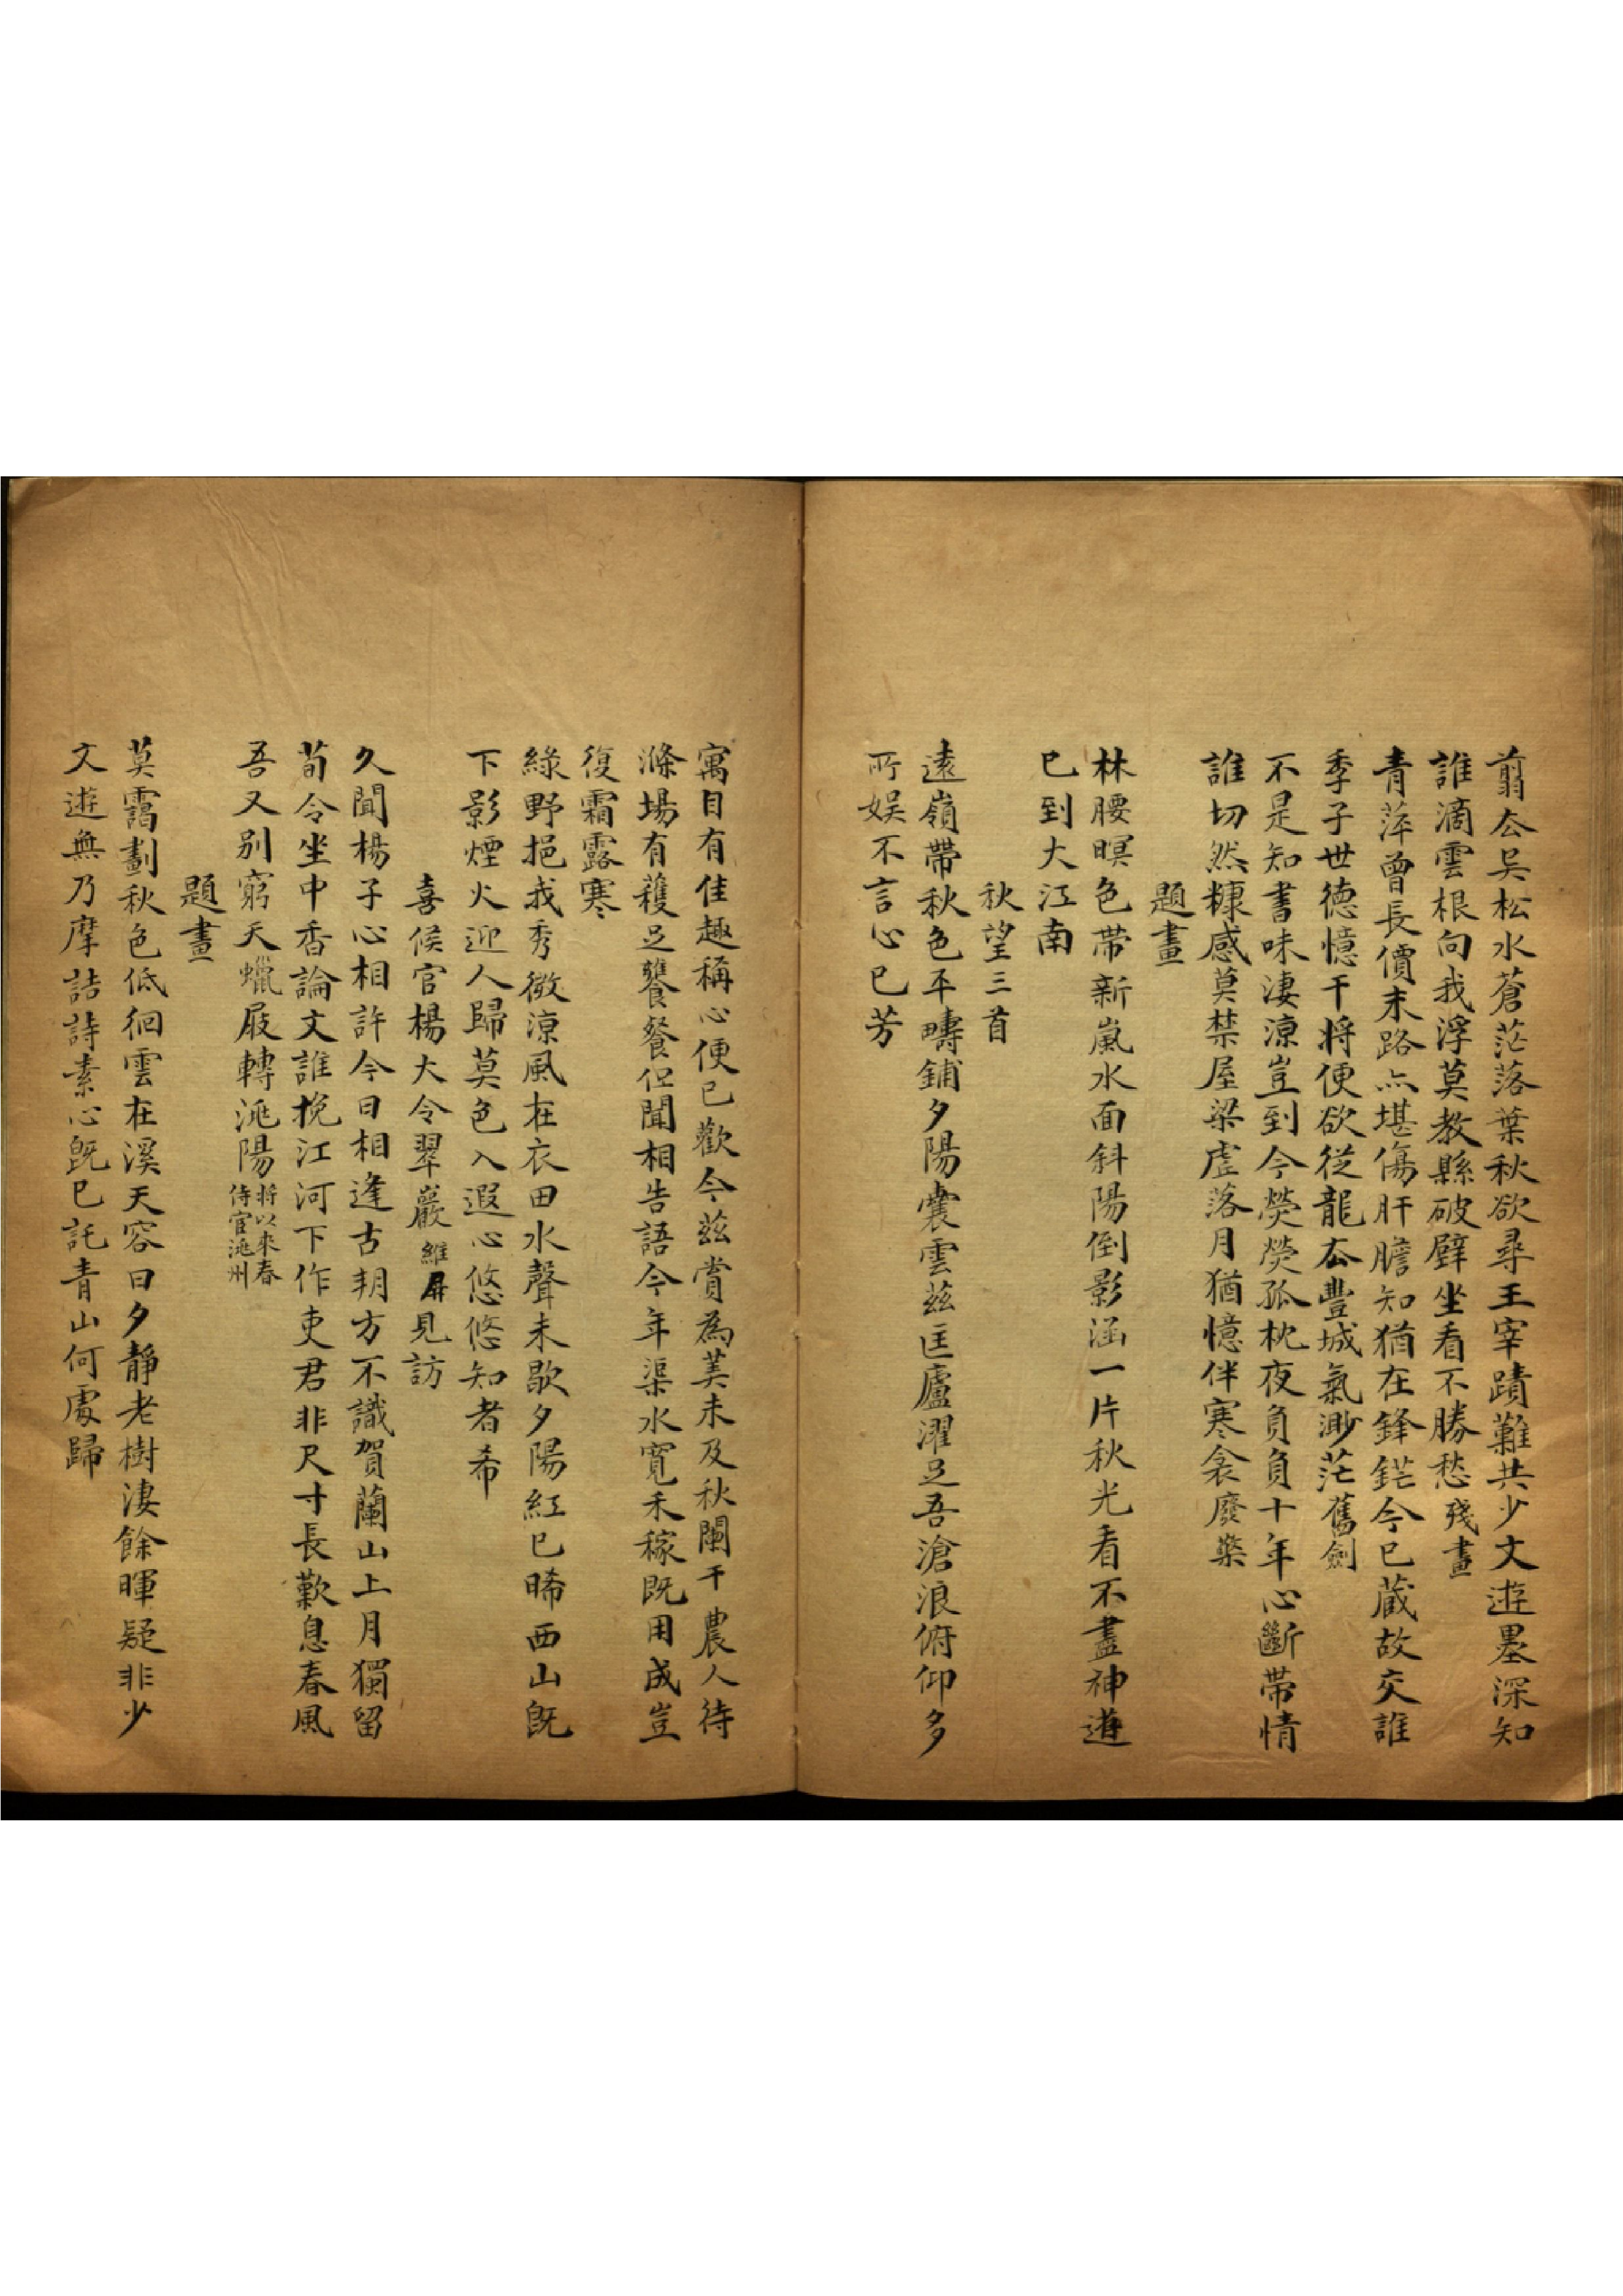 翦厺吳松水蒼茫落葉秋欲尋王宰蹟難共少文遊墨深知
誰滴雲根向我浮莫教縣破壁坐看不勝愁殘畫
青萍曾長價末路亦堪傷肝膽知猶在鋒鋩今已蔵故交誰
季子世德憶干將便欲從龍厺豐城氣渺茫舊劍
不是知書味淒涼豈到今熒熒孤枕夜負負十年心斷帶情
誰切然糠感莫禁屋梁虛落月猶憶伴寒衾廢檠
題畫
林腰暝色帶新嵐水面斜陽倒影涵一片秋光看不盡神遊
已到大江南
秋望三首
遠嶺帶秋色平疇鋪夕陽褰雲茲匡廬濯足吾滄浪俯仰多
所娛不言心已芳
寓目有佳趣稱心便已歡今茲賞為美未及秋闌干農人待
滌場有穫足饔餐但聞相告語今年渠水寬禾稼既用成豈
復霜露寒
綠野挹我秀微涼風在衣田水聲未歇夕陽紅已晞西山既
下影煙火迎人歸莫色入遐心悠悠知者希
喜候官楊大令翠巖維屏見訪
久聞楊子心相許今日相逢古朔方不識賀蘭山上月獨留
荀令坐中香論文誰挽江河下作吏君非尺寸長歎息春風
吾又別窮天蠟屐轉洮陽將以來春侍官洮州
題畫
莫靄劃秋色低徊雲在溪天容日夕靜老樹淒餘暉疑非少
文遊無乃摩詰詩素心既已託青山何處歸